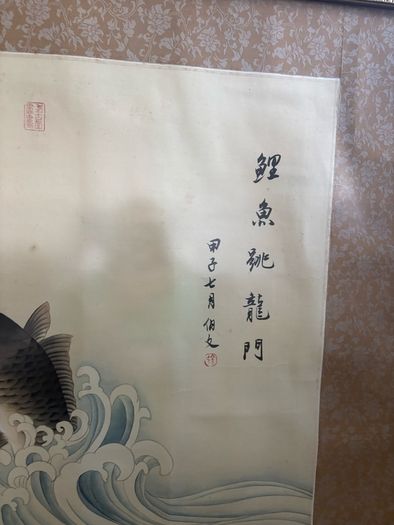 鯉魚跳龍門
甲子七月伯文